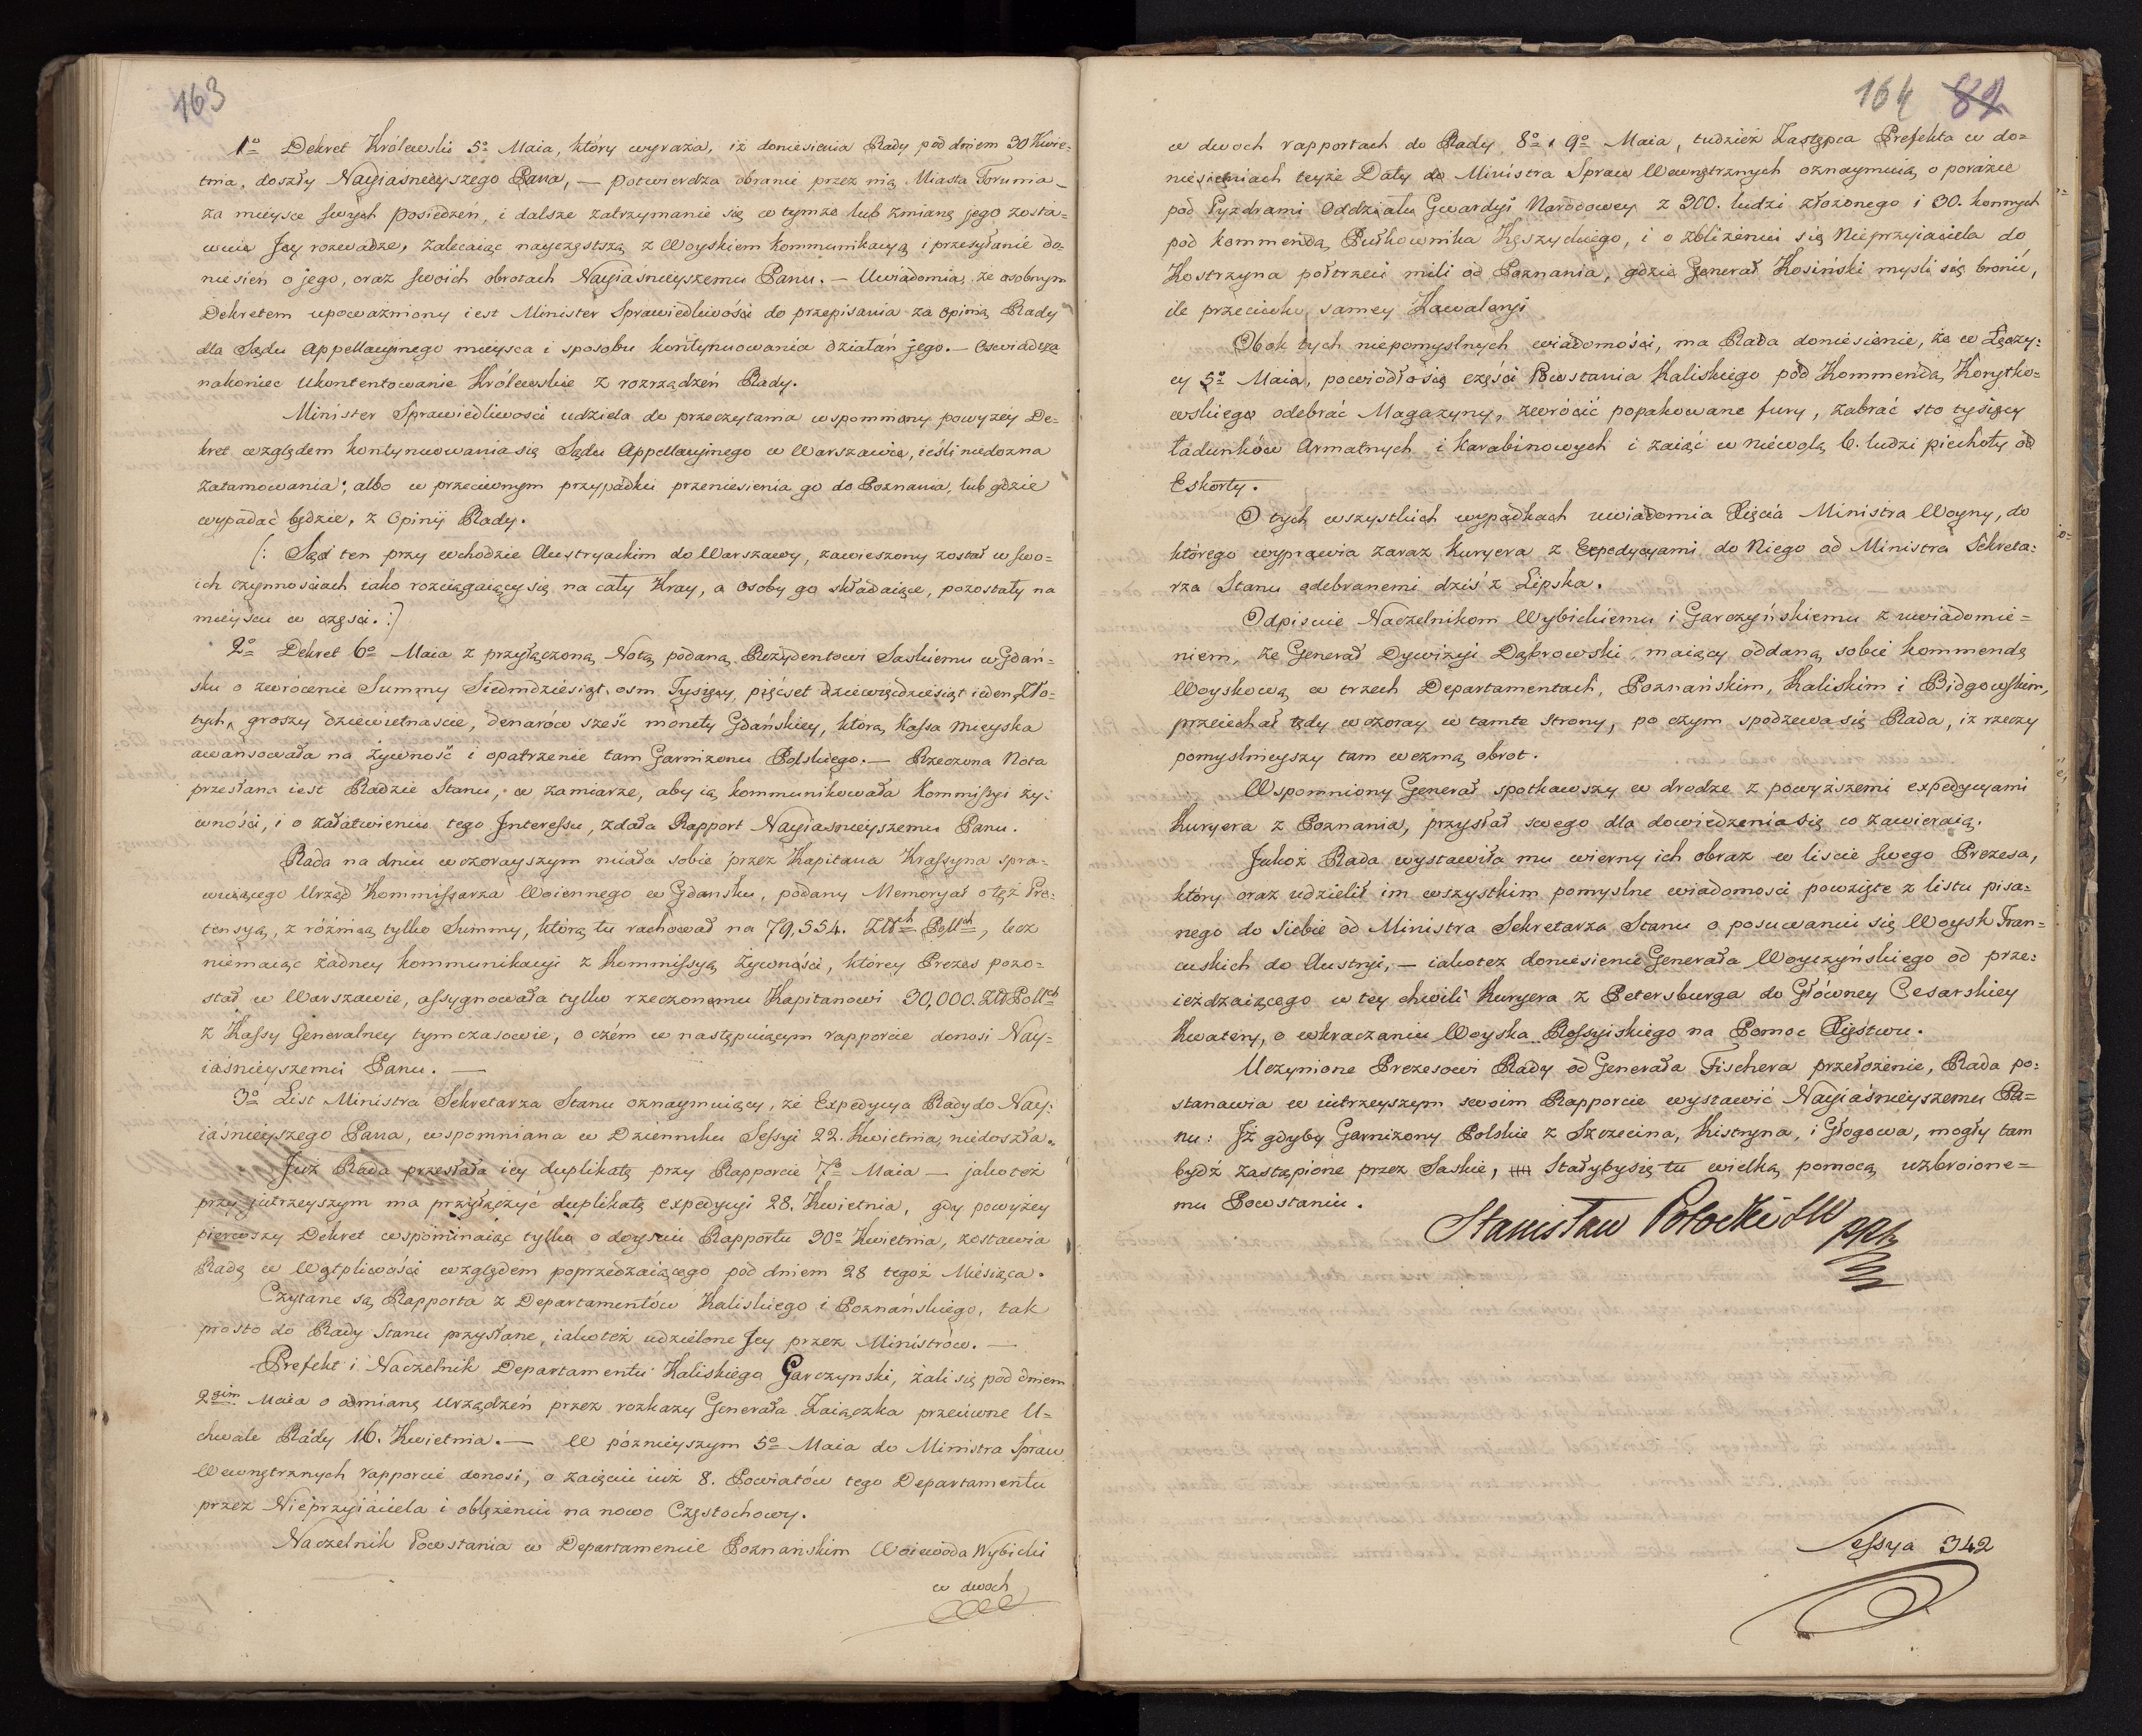 163
1º Dekret Królewski 5º Maia, który wyraża, iż doniesienia Rady pod dniem 30 Kwie=
tnia, doszły Nayiasnieyszego Pana, — potwierdza obranie przez nią Miasta Torunia —
za mieysce swych posiedzeń, i dalsze zatrzymanie się w tymże lub zmianę jego zosta=
wuie Jey rozwadze, zalecaiąc nayczęstszą z Woyskiem kommunikacyą i przesyłanie do=
niesień o jego, oraz swoich obrotach Nayiaśnieyszemu Panu. — Uwiadomia, że osobnym
Dekretem upoważniony iest Minister Sprawiedliwości do przepisania za opinią Rady
dla Sądu Appellacyinego mieysca i sposobu kontynuowania działań jego. — Oswiadcza
nakoniec Ukontentowanie Królewskie z rozrządzeń Rady.
Minister Sprawiedliwosci udziela do przeczytania wspomniony powyzéy De=
kret względem kontynuowania się Sądu Appellacyinego w Warszawie, iésli niedozna
zatamowania; albo w przeciwnym przypadku przeniesienia go do Poznania, lub gdzie
wypadać będzie, z Opinij Rady.
(: Sąd ten przy wchodzie Austryackim do Warszawy, zawieszony został w swo=
ich czynnościach iako rozciągaiący się na cały Kray, a osoby go składaiące, pozostały na
mieyscu w części. :)
2º Dekret 6º Maia z przyłączoną Notą podaną Rezydentowi Saskiemu w Gdań=
sku o zwrócenie Summy Siedmdziesiąt osm Tysięcy, pięćset dziewięćdziesiąt ieden Zło=
tych, groszy dziewiętnaście, denarów sześć monety Gdańskiey, którą Kassa Mieyska
awansowała na żywność i opatrzenie tam Garnizonu Polskiego. — Rzeczona Nota
przesłana iest Radzie Stanu, w zamiarze, aby ią kommunikowała Kommissyi ży=
wności, i o załatwieniu tego Interessu, zdała Rapport Nayiasnieyszemu Panu.
Rada na dniu wczorayszym miała sobie przez Kapitana Krassyna spra=
wuiącego Urząd Kommissarza Woiennego w Gdansku, podany Memoryał o tęż Pre=
tensyą, z różnicą tylko Summy, którą tu rachował na 79,554. Złłch Pollch, lecz
niemaiąc żadney kommunikacyi z Kommissyą Żywności, którey Prezes pozo=
stał w Warszawie, assygnowała tylko rzeczonemu Kapitanowi 30,000. Złł Pollch
z Kassy Generalney tymczasowie, o czém w następuiącym rapporcie donosi Nay=
iaśnieyszemu Panu. —
3º List Ministra Sekretarza Stanu oznaymuiący, że Expedycya Rady do Nay=
iaśnieyszego Pana, wspomniana w Dzienniku Sessyi 22. Kwietnia, niedoszła.
Już Rada przesłała iey duplikatę przy Rapporcie 7º Maia — jakoteż
przy jutrzeyszym ma przyłączyć duplikatę expedycyi 28. Kwietnia, gdy powyżey
pierwszy Dekret wspominaiąc tylko o doyściu Rapportu 30º Kwietnia, zostawia
Radę w Wątpliwości względem poprzedzaiącego pod dniem 28 tegoż Miesiąca.
Czytane są Rapporta z Departamentów Kaliskiego i Poznańskiego, tak
prosto do Rady Stanu przysłane, iakoteż udzielone Jey przez Ministrów. —
Prefekt i Naczelnik Departamentu Kaliskiego Garczynski, żali się pod dniem
2gim Maia o odmianę Urządzeń przez rozkazy Generała Zaiączka przeciwne U=
chwale Rady 16. Kwietnia. — W pózniéyszym 5º Maia do Ministra Spraw
Wewnętrznych rapporcie donosi, o zaięciu iuż 8. Powiatów tego Departamentu
przez Nieprzyiaciela i oblężeniu na nowo Częstochowy.
Naczelnik Powstania w Departamencie Poznańskim Woiewoda Wybicki
w dwoch
164 82
w dwoch rapportach do Rady 8º i 9º Maia, tudzież Zastępca Prefekta w do=
niesieniach teyże Daty do Ministra Spraw Wewnętrznych oznaymuią o porażce
pod Pyzdrami Oddziału Gwardyi Narodowey z 300. ludzi złożonego i 30. konnych
pod kommendą Pułkownika Kęszyckiego, i o zbliżeniu się Nieprzyiaciela do
Kostrzyna półtrzeci mili od Poznania, gdzie Generał Kosiński mysli się bronić,
ile przeciwko samey Kawaleryi
Obok tych niepomyslnych wiadomości, ma Rada doniesienie, że w Łęczy=
cy 5º Maia, powiodło się części Powstania Kaliskiego pod Kommendą Korytko=
wskiego odebrać Magazyny, zwrócić popakowane fury, zabrać sto tysięcy
ładunków Armatnych i karabinowych i zaiąć w niéwolą 6. ludzi piechoty od
Eskorty.
O tych wszystkich wypadkach uwiadomia Xięcia Ministra Woyny, do
którego wyprawia zaraz kuryera z Expedycyami do Niego od Ministra Sekreta=
rza Stanu odebranemi dziś z Lipska.
Odpisuie Naczelnikom Wybickiemu i Garczyńskiemu z uwiadomie=
niem, że Generał Dywizyi Dąbrowski, maiący oddaną sobie kommendę
Woyskową w trzech Departamentach, Poznańskim, Kaliskim i Bidgowskim,
przeiechał tędy wczoray w tamte strony, po czym spodzewa się Rada, iż rzeczy
pomyslnieyszy tam wezmą obrot.
Wspomniony Generał spotkawszy w drodze z powyższemi expedycyami
Kuryera z Poznania, przysłał swego dla dowiedzenia się co zawieraią.
Jakoż Rada wystawiła mu wierny ich obraz w liscie swego Prezesa,
który oraz udzielił im wszystkim pomyslne wiadomości powzięte z listu pisa=
nego do Siebie od Ministra Sekretarza Stanu o posuwaniu się Woysk Fran=
cuskich do Austryi, — iakoteż doniesienie Generała Woyczyńskiego od prze=
ieżdzaiącego w tey chwili Kuryera z Petersburga do Główney Cesarskiey
Kwatery, o wkraczaniu Woyska Rossyiskiego na Pomoc Xięstwu.
Uczynione Prezesowi Rady od Generała Fischera przełożenie, Rada po=
stanawia w iutrzeyszym swoim Rapporcie wystawić Nayiaśnieyszemu Pa=
nu: Iż gdyby Garnizony Polskie z Szczecina, Kistryna, i Głogowa, mogły tam
bydź zastąpione przez Saskie, stałyby się tu wielką pomocą uzbroione=
mu Powstaniu.
Stanisław Potocki
Sessya 342